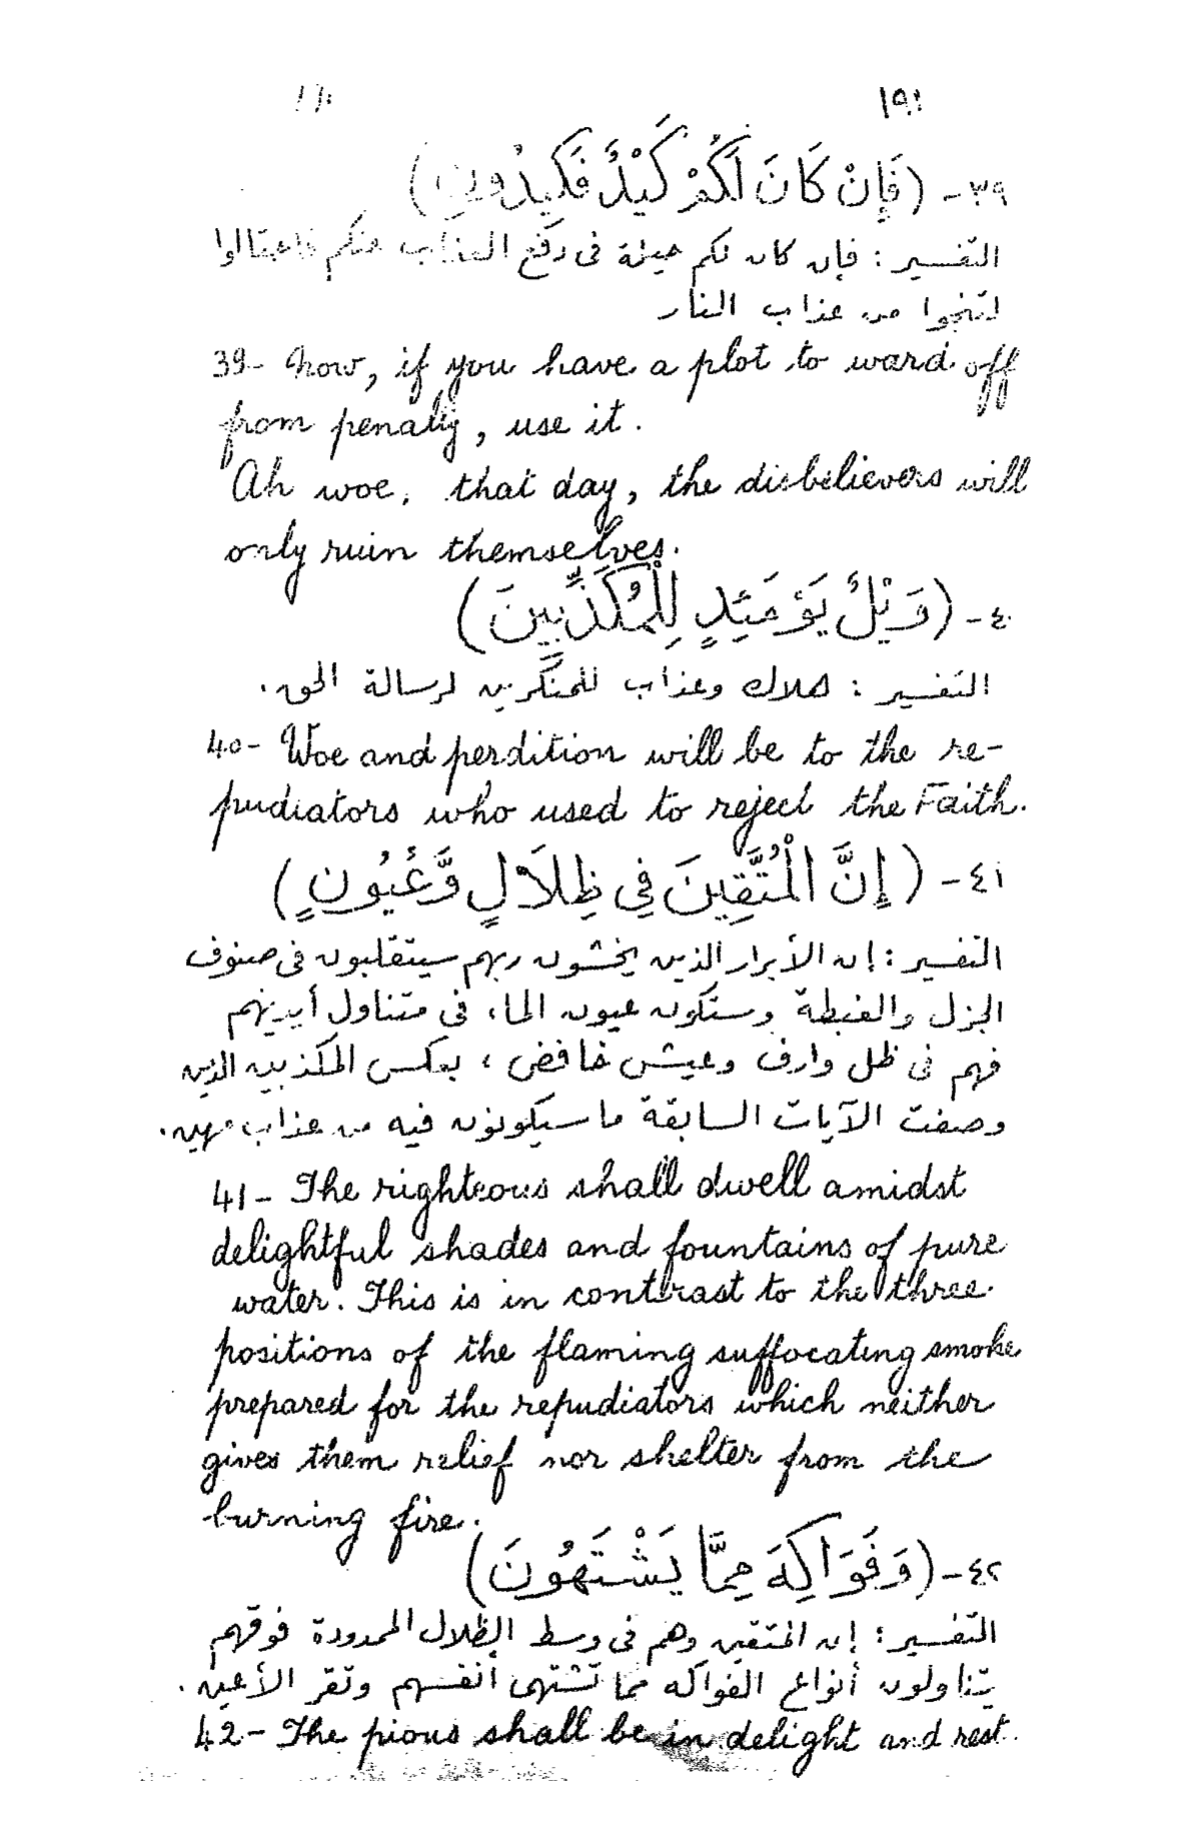 ١٩١
٣٩- (فَإِنْ كَانَ لَكُمْ كَيْدٌ فَكِيدُونِ)
التفسير : فإن كان لكم حيلة فى دفع العذاب عنكم فاحتالوا
لتنجوا من عذاب النار
39- Now, if you have a plot to ward off
from penalty, use it.
Ah woe, that day, the disbelievers will
only ruin themselves.
٤٠- (وَيْلٌ يَوْمَئِدٍ لِلْمُكَذِّبِينَ)
التفسير : هلاك وعذاب للمنكرين لرسالة الحق .
40- Woe and perdition will be to the re-
pudiators who used to reject the Faith.
٤١- (إِنَّ الْمُتَّقِينَ فِي ظِلَالٍ وَّعُيُونٍ)
التفسير : إن الأبرار الذين يخشون ربهم سيتقلبون فى صنوف
الجزل والغبطة وستكون عيون الماء فى متناول أيديهم
فهم فى ظل وارف وعيش خافض ، بعكس المكذبين الذين
وصفت الآيات السابقة ما سيكونون فيه من عذاب مهين .
41- The righteous shall dwell amidst
delightful shades and fountains of pure
water. This is in contrast to the three
positions of the flaming suffocating smoke
prepared for the repudiators which neither
gives them relief nor shelter from the
burning fire.
٤٢- (وَفَوَاكِهَ مِمَّا يَشْتَهُونَ)
التفسير : إن المتقين وهم فى وسط الظلال الممدودة فوقهم
يتناولون أنواع الفواكه مما تشتهى أنفسهم وتقر الأعين .
42- The pious shall be in delight and rest.